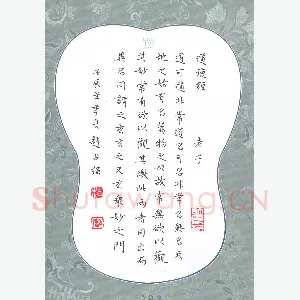 道德經 老子
道可道非常道名可名非常名無名天
地之始有名萬物之母故常無欲以觀
其妙常有欲以觀其徼此兩者同出而
異名同謂之玄玄之又玄眾妙之門
Shufawang.cn